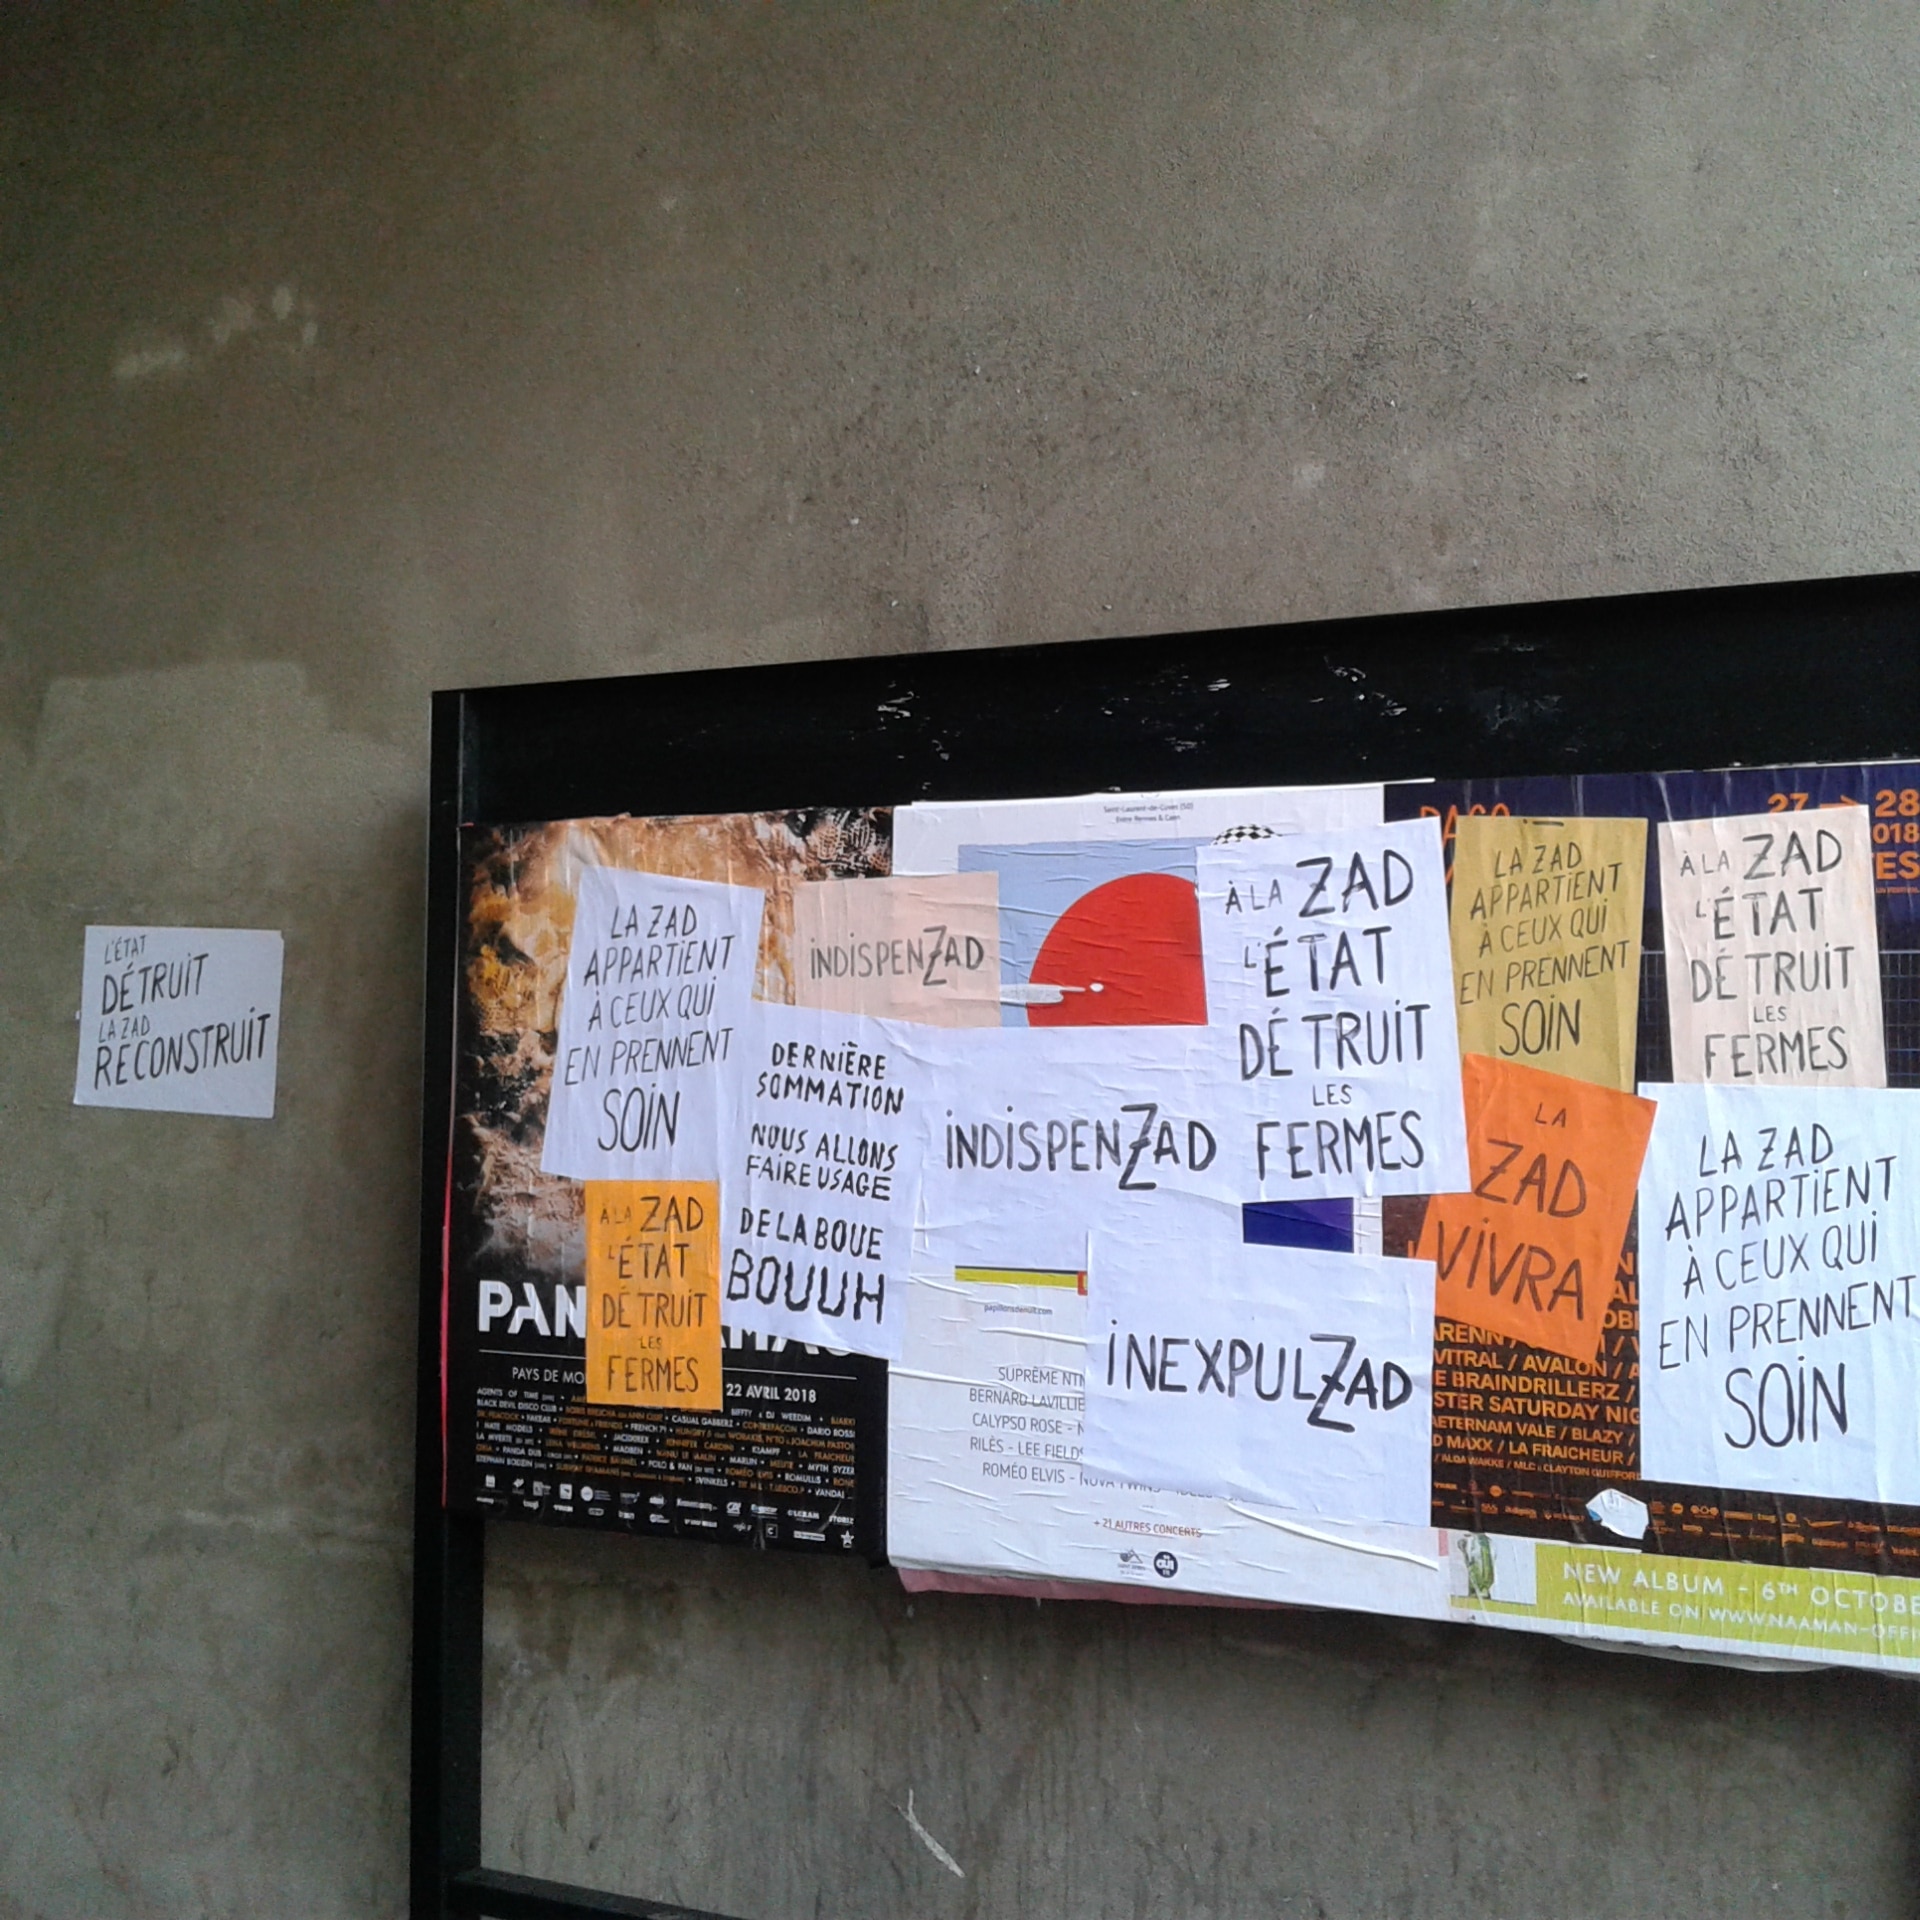 L'ÉTAT
DÉTRUIT
LA ZAD
RECONSTRUIT
LA ZAD
APPARTIENT
À CEUX QUI
EN PRENNENT
SOIN
INDISPENZAD
DERNIÈRE
SOMMATION
NOUS ALLONS
FAIRE USAGE
DE LA BOUE
BOUUH
À LA ZAD
L'ÉTAT
DÉTRUIT
LES
FERMES
PAN
PAYS DE MO
22 AVRIL 2018
AGENTS OF TIME
BLACK DEVIL DISCO CLUB
CASUAL GABBERZ
Saint-Laurent-de-Cuves (50)
Entre Rennes & Caen
INDISPENZAD
À LA ZAD
L'ÉTAT
DÉTRUIT
LES
FERMES
INEXPULZAD
papillonsdenuit.com
SUPRÊME NTM
BERNARD LAVILLIE
CALYPSO ROSE -
RILÈS - LEE FIELDS
ROMÉO ELVIS - NOVA TWINS
+ 21 AUTRES CONCERTS
OÜI
27 → 28
2018
LA ZAD
APPARTIENT
À CEUX QUI
EN PRENNENT
SOIN
À LA ZAD
L'ÉTAT
DÉTRUIT
LES
FERMES
LA
ZAD
VIVRA
LA ZAD
APPARTIENT
À CEUX QUI
EN PRENNENT
SOIN
VITRAL / AVALON /
E BRAINDRILLERZ /
STER SATURDAY NIG
AETERNAM VALE / BLAZY /
D MAXX / LA FRAICHEUR /
NEW ALBUM - 6TH OCTOBE
AVAILABLE ON WWW.NAAMAN-OFFI